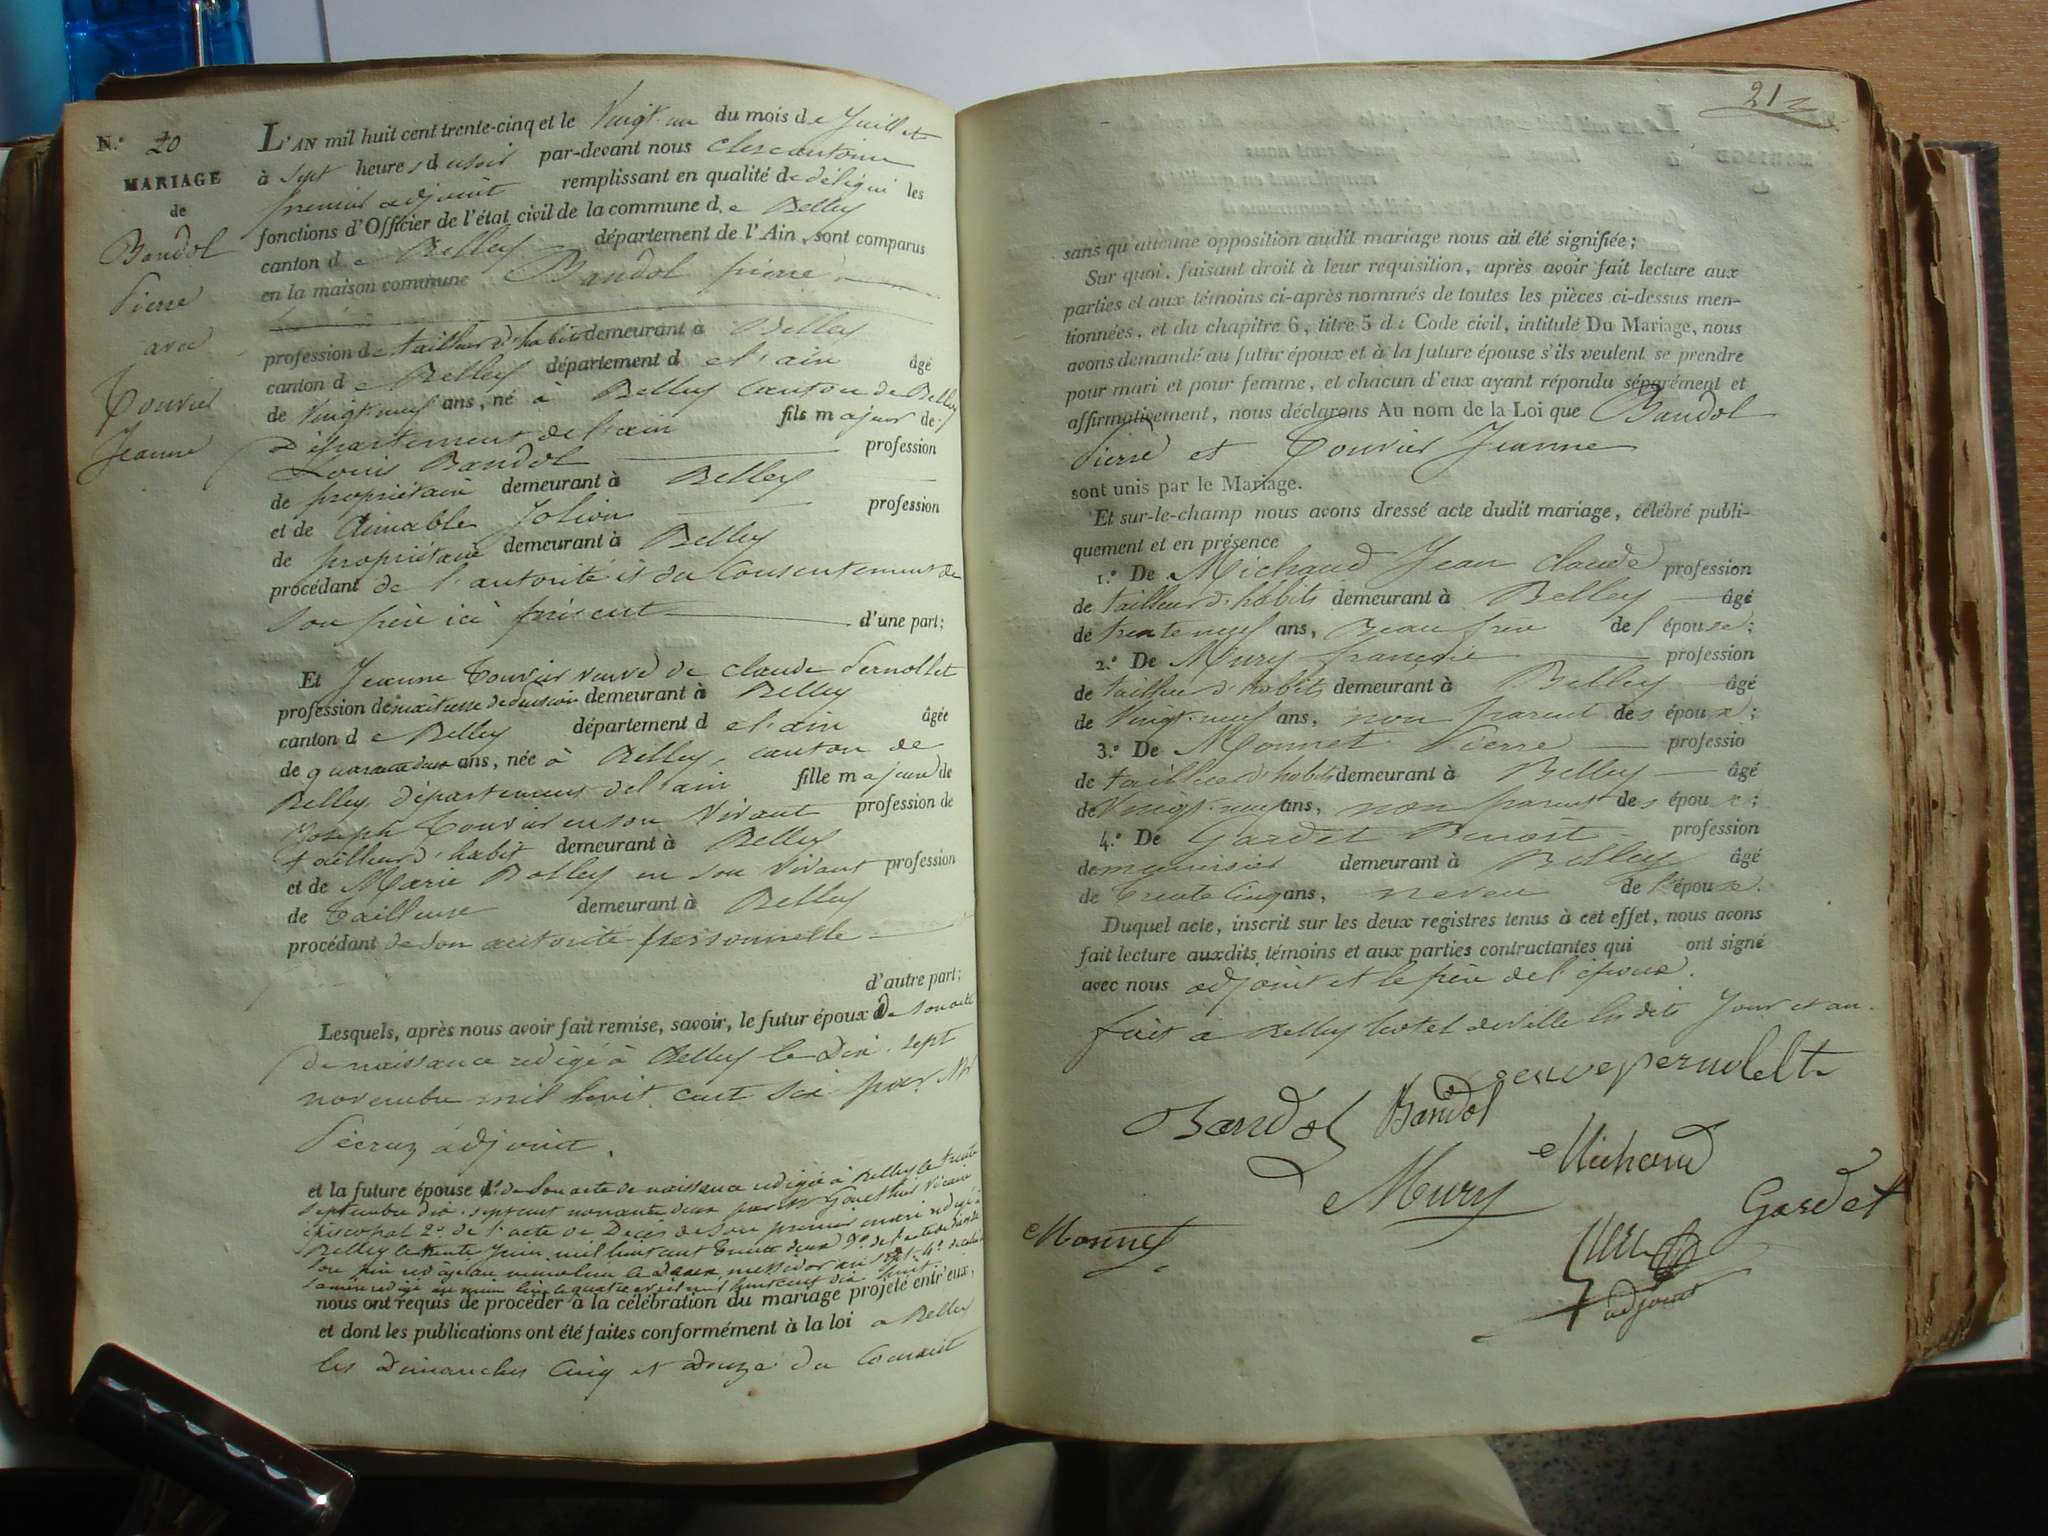 N.° 20
MARIAGE
de
Bandol
Pierre
avec
Touvier
Jeanne
L'AN mil huit cent trente-cinq et le Vingt-un du mois de Juillet
à Sept heures du soir par-devant nous
premier adjoint remplissant en qualité de délégué les
fonctions d'Officier de l'état civil de la commune de Belley
canton de Belley département de l'Ain, sont comparus
en la maison commune Bandol pierre
profession de tailleur d'habits demeurant à Belley
canton de Belley département de l'ain âgé
de Vingt neuf ans, né à Belley Canton de Belley
Département de l'ain fils majeur de
Louis Bandol profession
de propriétaire demeurant à Belley
et de Aimable Jolivin profession
de propriétaire demeurant à Belley
procédant de l'autorité et du Consentement de
Son père ici présent d'une part;
Et Jeanne Touvier veuve de claude Pernollet
profession de maitresse de pension demeurant à Belley
canton de Belley département de l'ain âgée
de quarante deux ans, née à Belley, canton de
Belley, département de l'ain fille majeure de
Joseph Touvier en son Vivant profession de
tailleur d'habit demeurant à Belley
et de Marie Bolley en son Vivant profession
de Tailleuse demeurant à Belley
procédant de son autorité personnelle
d'autre part;
Lesquels, après nous avoir fait remise, savoir, le futur époux De son acte
de naissance redigé à Belley le Dix-sept
novembre mil huit cent six par Mr
adjoint.
et la future épouse 1.° de son acte de naissance redigé à Belley le trente
Septembre dix-sept cent nonante deux par Mr Gouthier Vicaire
épiscopal 2.° de l'acte de Décès de son premier mari redigé à
Belley le trente Juin mil huit cent trente deux 3.° de l'acte de Décès de
son père redigé au même lieu le messidor an 4.° de celui de
sa mère redigé au même lieu le quatre avril mil huit cent dix huit.
nous ont requis de procéder à la célébration du mariage projeté entr'eux,
et dont les publications ont été faites conformément à la loi a Belley
les Dimanches Cinq et Douze du Courant
21
sans qu'aucune opposition audit mariage nous ait été signifiée;
Sur quoi, faisant droit à leur requisition, après avoir fait lecture aux
parties et aux témoins ci-après nommés de toutes les pièces ci-dessus men-
tionnées, et du chapitre 6, titre 5 du Code civil, intitulé Du Mariage, nous
avons demandé au futur époux et à la future épouse s'ils veulent se prendre
pour mari et pour femme, et chacun d'eux ayant répondu séparément et
affirmativement, nous déclarons Au nom de la Loi que Bandol
Pierre et Touvier Jeanne
sont unis par le Mariage.
Et sur-le-champ nous avons dressé acte dudit mariage, célébré publi-
quement et en présence
1.° De Michaud Jean Claude profession
de tailleur d'habits demeurant à Belley âgé
de trente neuf ans, Beau frère de l'épouse;
2.° De Mury profession
de tailleur d'habits demeurant à Belley âgé
de Vingt-neuf ans, non parent des époux;
3.° De Monnet Pierre professio
de tailleur d'habits demeurant à Belley âgé
de Vingt-neuf ans, non parent des époux;
4.° De Gardet Benoit profession
de menuisier demeurant à Belley âgé
de Trente Cinq ans, neveu de l'épouse.
Duquel acte, inscrit sur les deux registres tenus à cet effet, nous avons
fait lecture auxdits témoins et aux parties contractantes qui ont signé
avec nous adjoint et le père de l'époux.
fait a Belley hotel de ville les dits Jour et an.
veuve pernolelt
Bandol Bandol
Michaud
Mury
Gardet
Monnet
adjoint